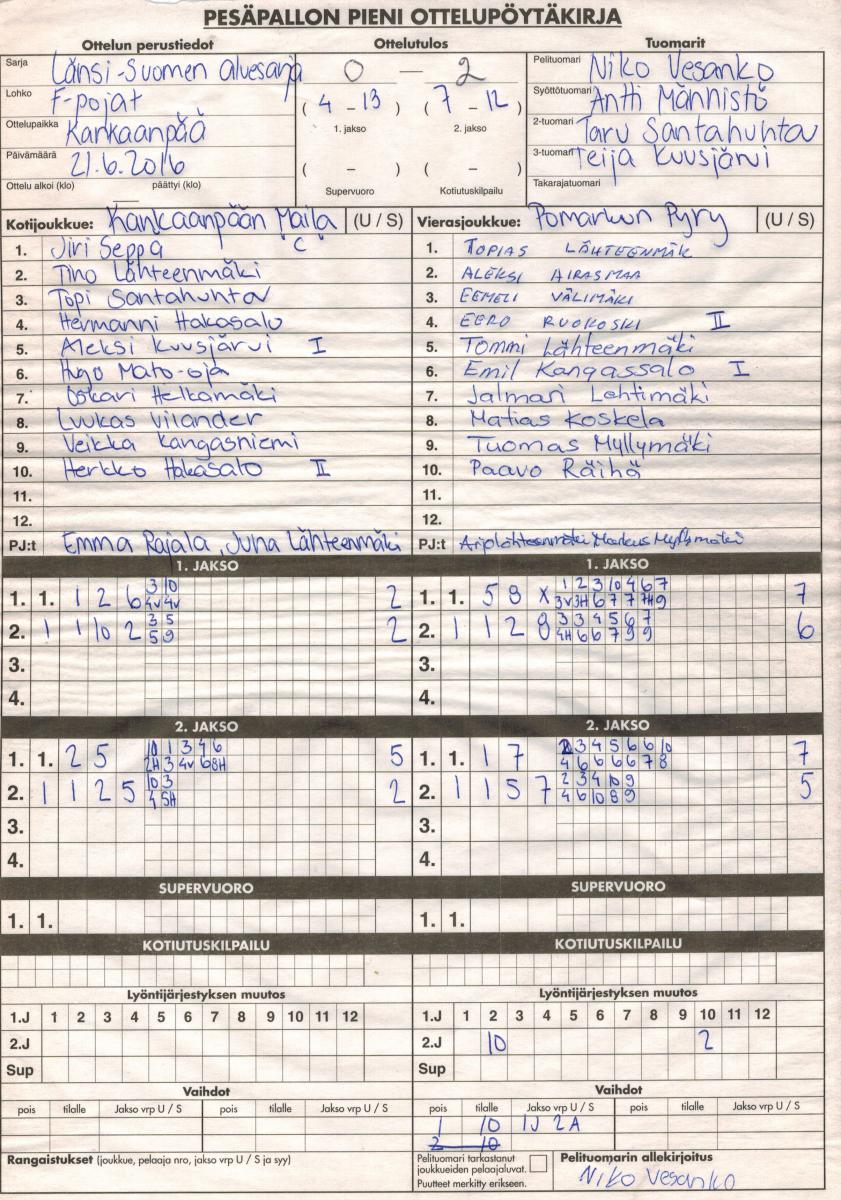 PESÄPALLON PIENI OTTELUPÖYTÄKIRJA
Ottelun perustiedot Ottelutulos Tuomarit
Sarja Länsi-Suomen aluesarja 0 — 2 Pelituomari Niko Vesanko
Lohko F-pojat ( 4 - 13 ) ( 7 - 12 ) Syöttötuomari Antti Männistö
Ottelupaikka Kankaanpää 1. jakso 2. jakso 2-tuomari Taru Santahuhta
Päivämäärä 21.6.2016 ( – ) ( – ) 3-tuomari Teija Kuusjärvi
Ottelu alkoi (klo) päättyi (klo) Supervuoro Kotiutuskilpailu Takarajatuomari
Kotijoukkue: Kankaanpään Maila (U / S) Vierasjoukkue: Pomarkun Pyry (U / S)
1. Jiri Seppä C 1. TOPIAS LÄHTEENMÄK
2. Tino Lähteenmäki 2. ALEKSI AIRASMAA
3. Topi Santahuhta 3. EEMELI VÄLIMÄKI
4. Hermanni Hakasalo 4. EERO RUOKOSKI II
5. Aleksi Kuusjärvi I 5. Tommi Lähteenmäki
6. Hugo Mato-oja 6. Emil Kangassalo I
7. Oskari Helkamäki 7. Jalmari Lehtimäki
8. Luukas Vilander 8. Matias Koskela
9. Veikka Kangasniemi 9. Tuomas Myllymäki
10. Herkko Hakasalo II 10. Paavo Räihä
11. 11.
12. 12.
PJ:t Emma Rajala, Juha Lähteenmäki PJ:t Markus Myllymäki
1. JAKSO 1. JAKSO
3 10 1 2 3 10 4 6 7
1. 1. 1 2 6 4v 4v 2 1. 1. 5 8 X 3v 3H 6 7 7 7H 9 7
3 5 3 3 4 5 6 7
2. 1 1 10 2 5 9 2 2. 1 1 2 8 4H 6 6 7 9 9 6
3. 3.
4. 4.
2. JAKSO 2. JAKSO
10 1 3 4 6 2 3 4 5 6 6 10
1. 1. 2 5 2H 3 4v 6 8H 5 1. 1. 1 7 4 6 6 6 6 7 8 7
10 3 2 3 4 10 9
2. 1 1 2 5 4 5H 2 2. 1 1 5 7 4 6 10 8 9 5
3. 3.
4. 4.
SUPERVUORO SUPERVUORO
1. 1. 1. 1.
KOTIUTUSKILPAILU KOTIUTUSKILPAILU
Lyöntijärjestyksen muutos Lyöntijärjestyksen muutos
1.J 1 2 3 4 5 6 7 8 9 10 11 12 1.J 1 2 3 4 5 6 7 8 9 10 11 12
2.J 2.J 10 2
Sup Sup
Vaihdot Vaihdot
pois tilalle Jakso vrp U / S pois tilalle Jakso vrp U / S pois tilalle Jakso vrp U / S pois tilalle Jakso vrp U / S
1 10 1J 2A
2 10
Rangaistukset (joukkue, pelaaja nro, jakso vrp U / S ja syy) Pelituomari tarkastanut Pelituomarin allekirjoitus
joukkueiden pelaajaluvat.
Puutteet merkitty erikseen. Niko Vesanko